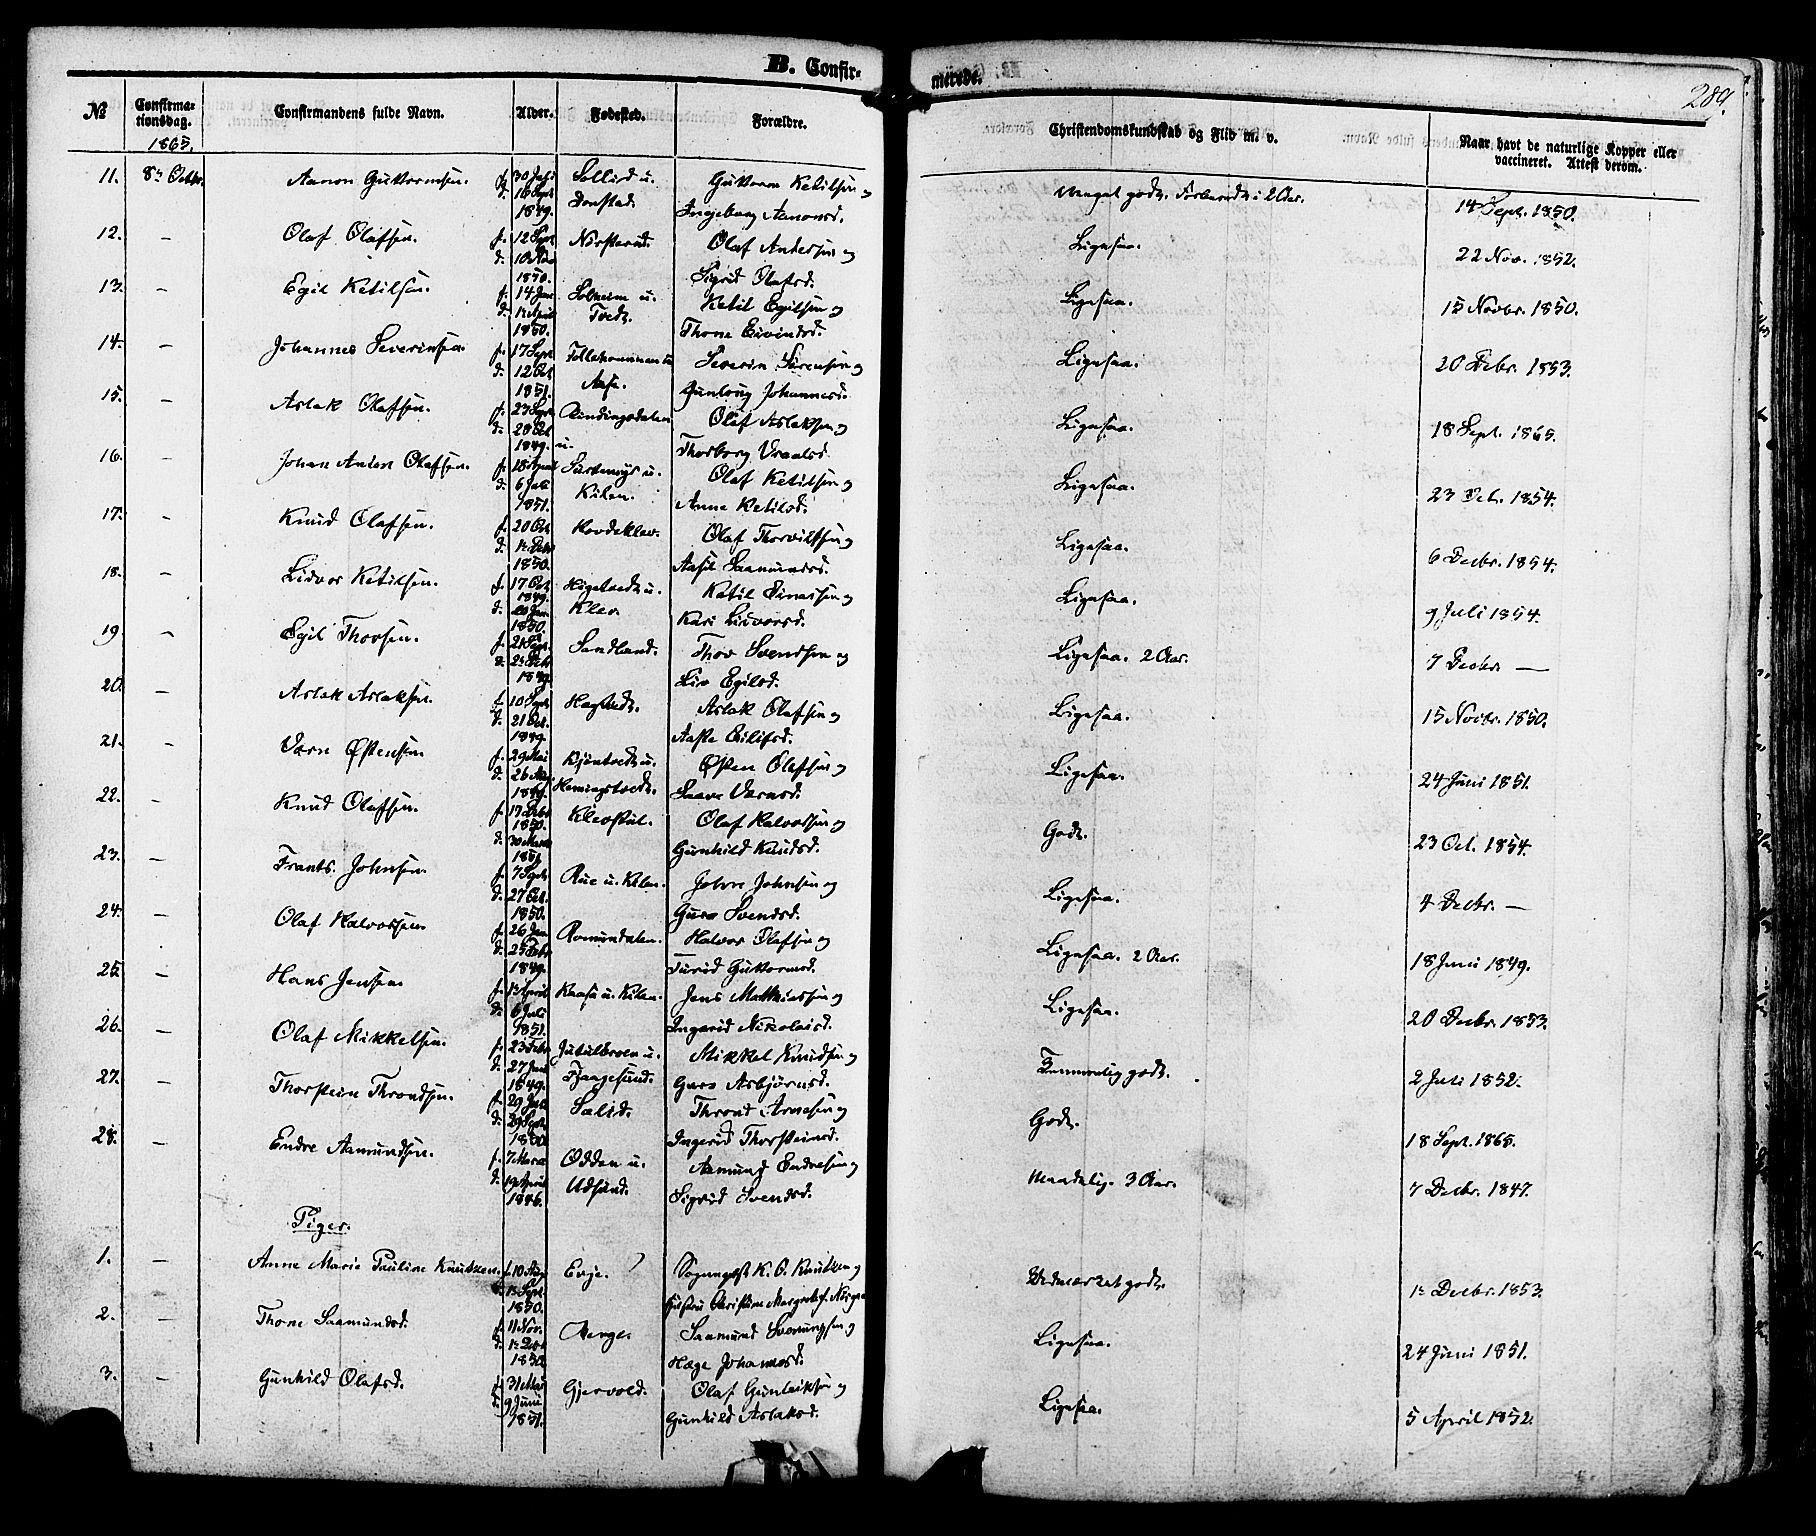 B. Confir-
merede.
289.
№
Confirma-
tionsdag.
1865.
Confirmandens fulde Navn.
Alder.
Fødested.
Forældre.
Christendomskundskab og Flid m. v.
Naar havt de naturlige Kopper eller
vaccineret. Attest derom.
11. 8de Octbr. Aanon Guttormsen. f. 30 Juli Sollid u. Guttorm Ketilsen og Meget godt. Forberedt i 2 Aar. 14 Sept. 1850.
d. 16 Sept Donstad. Ingeborg Aanonsd.
1849.
12. — Olaf Olafsen. f. 12 Sept Olaf Andersen og Ligesaa. 22 Nov. 1852.
d. Sigrid Olafsd.
1850.
13. — Egil Ketilsen. f. 14 Jan Solheim u. Ketil Egilsen og Ligesaa. 15 Novbr. 1850.
d. 1 April Tvedt. Thone Eivindsd.
1850.
14. — Johannes Severinsen. f. 17 Sept Severin Sørensen og Ligesaa. 20 Debr. 1853.
d. 12 Oct Aase. Gunlaug Johannesd.
1851.
15. — Aslak Olafsen. f. 23 Sept Rindingsdalen Olaf Aslaksen og Ligesaa. 18 Sept. 1865.
d. 28 Oct u. Thorborg Vraalsd.
1849.
16. — Johan Anton Olafsen. f. 18 April u. Olaf Ketilsen og Ligesaa. 23 Oct. 1854.
d. 6 Juli Kilen. Anne Ketilsd.
1851.
17. — Knud Olafsen. f. 20 Oct Hovdeklev. Olaf Thorvilssen og Ligesaa. 6 Decbr. 1854.
d. 1 Debr Aasil Saamundsd.
1850.
18. — Lidvor Ketilsen. f. 17 Oct Høgetvedt u. Ketil Einarsen og Ligesaa. 9 Juli 1854.
1849.
d. 20 Jan. Klev. Kari Lidvorsd.
1850.
19. — Egil Thovsen. f. 21 Sept. Sandland. Thov Svendsen og Ligesaa. 2 Aar. 7 Decbr. —
d. Liv Egilsd.
1849.
20. — Aslak Aslaksen. f. 10 Sept Hagtvedt. Aslak Olafsen og Ligesaa. 15 Novbr. 1850.
d. 21 Oct. Aaste Eilifsd.
1849.
21. — Vorn Østensen f. 29 Mai Kjøntvedt u. Østen Olafsen og Ligesaa. 24 Juni 1851.
d. 26 Aug Hemingstvedt. Saave Vornsd.
1849.
22. — Knud Olafsen. f. 17 Debr Klevstul. Olaf Halvorsen og Godt. 23 Oct. 1854.
1850.
d. 30 Marts Gunhild Knudsd.
1851
23. — Frants Johnsen. f. 7 Sept Rue u. Kilen. John Johnsen og Ligesaa. 4 Decbr. —
d. 27 Oct. Guro Svendsd.
1850.
24. — Olaf Halvorsen f. 26 Jan Romundalen. Halvor Olafsen og Ligesaa. 2 Aar. 18 Juni 1849.
d. 25 Febr Turid Guttormsd.
1849.
25. — Hans Jensen f. 13 April Raasa u. Kilen. Jens Matthiassen og Ligesaa. 20 Decbr. 1853.
d. 6 Juli Ingerid Nikolaisd.
1851.
26. — Olaf Mikkelsen. f. 23 Febr Jutulbroen u. Mikkel Knudsen og Temmelig godt. 2 Juli 1852.
d. 27 Jun Fjaagesund. Guro Asbjørnsd.
1849.
27. — Thorstein Throndsen. f. 29 Jul Solid. Thrond Arnesen og Godt. 18 Sept. 1865.
d. 29 Sept Ingerid Thorsteinsd.
1850
28. — Endre Aamundsen. f. 7 Marts Odden u. Aamund Endresen og Maadelig. 3 Aar. 7 Decbr. 1847.
d. 19 April Udsund. Sigrid Svendsd.
1846.
Piger.
1. — Anne Marie Pauline Knutzen. f. 10 Aug Evje. Sogneprest K. O. Knutzen og Udmærket godt. 1 Decbr. 1853.
d. 1 Sept Hustru Christine Margrethe f.
1850.
2. — Thone Saamundsd. f. 11 Nov. Saamund Svenungsen og Ligesaa. 24 Juni 1851.
d. 1 Debr Hæge Johannesd.
1850
3. — Gunhild Olafsd. f. 31 Mai Gjervold. Olaf Gunleiksen og Ligesaa. 5 April 1852.
d. 9 Juni Gunhild Aslaksd.
1851.